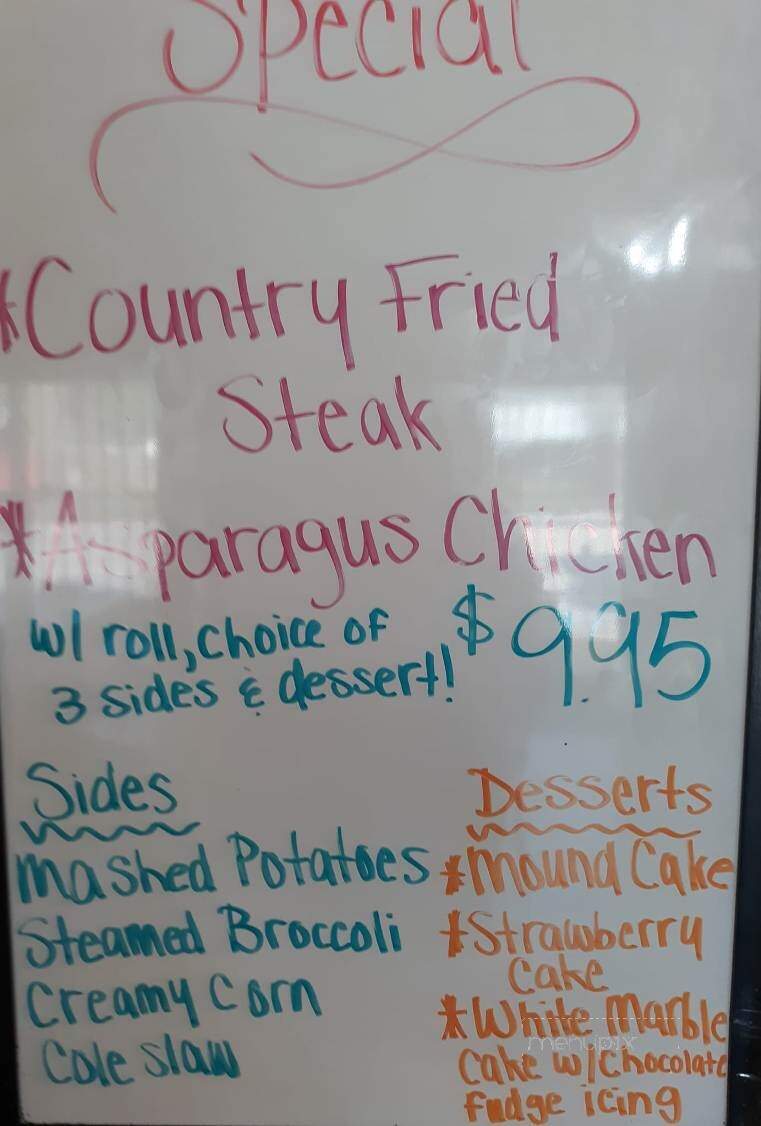 Special
*Country Fried
Steak
*Asparagus Chicken
w/ roll, choice of
3 sides & dessert!
$9.95
Sides
Mashed Potatoes
Steamed Broccoli
Creamy Corn
Cole slaw
Desserts
*Mound Cake
*Strawberry
Cake
*White Marble
Cake w/Chocolate
fudge icing
menupix